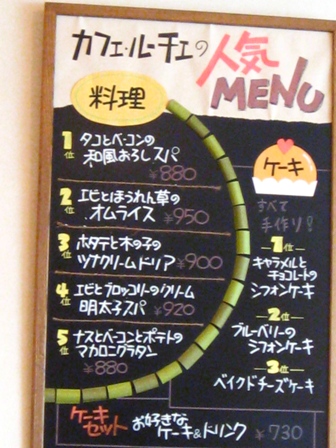 カフェ・ルーチェの
人気
MENU
料理
1位
タコとベーコンの
和風おろしスパ
¥880
2位
エビとほうれん草の
オムライス ¥950
3位
ホタテと木の子の
ツナクリームドリア ¥900
4位
エビとブロッコリーのクリーム
明太子スパ ¥920
5位
ナスとベーコンとポテトの
マカロニグラタン
¥880
ケーキ
すべて
手作り!
1位
キャラメルと
チョコレートの
シフォンケーキ
2位
ブルーベリーの
シフォンケーキ
3位
ベイクドチーズケーキ
ケーキ
セット
お好きな
ケーキ&ドリンク ¥730